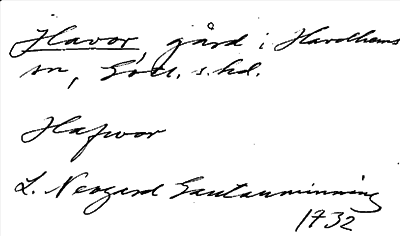 Havor, gård i Havdhems
sn, Gotl. s. hd.
Hafwor
L. Neogard Gautauminning
1732